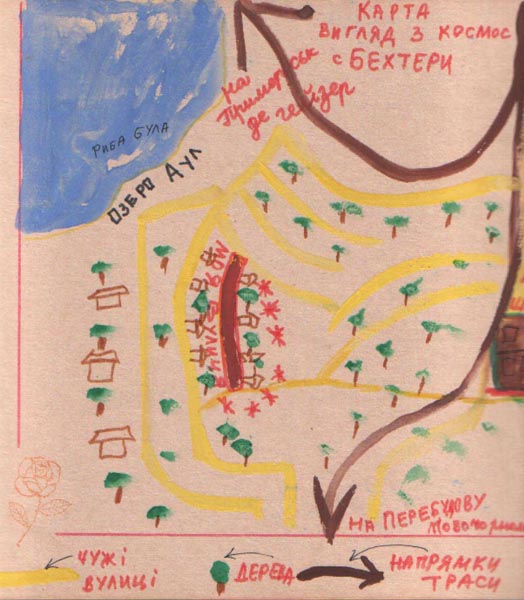 КАРТА
ВИГЛЯД З КОСМОС
с БЕХТЕРИ
НА
Приморськ
де гейзер
РИБА БУЛА
ОЗЕРО ДУЛ
НА ПЕРЕБУДОВУ
ЧУЖІ
ВУЛИЦІ
ДЕРЕВА
НАПРЯМКИ
ТРАСИ